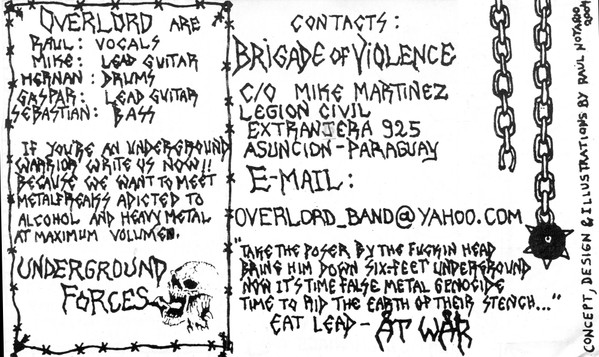 OVERLORD ARE
RAUL: VOCALS
MIKE: LEAD GUITAR
HERNAN: DRUMS
GASPAR: LEAD GUITAR
SEBASTIAN: BASS
IF YOU'RE AN UNDERGROUND
WARRIOR WRITE US NOW!!
BECAUSE WE WANT TO MEET
METALFREAKS ADICTED TO
ALCOHOL AND HEAVY METAL
AT MAXIMUM VOLUMEN.
UNDERGROUND
FORCES
CONTACTS:
BRIGADE OF VIOLENCE
C/O MIKE MARTINEZ
LEGION CIVIL
EXTRANJERA 925
ASUNCION-PARAGUAY
E-MAIL:
OVERLORD_BAND@YAHOO.COM
"TAKE THE POSER BY THE FUCKIN HEAD
BRING HIM DOWN SIX-FEET UNDERGROUND
NOW IT'S TIME FALSE METAL GENOCIDE
TIME TO RID THE EARTH OF THEIR STENCH..."
EAT LEAD - ÅT WÅR
CONCEPT, DESIGN & ILLUSTRATIONS BY RAUL NOTARO
2004